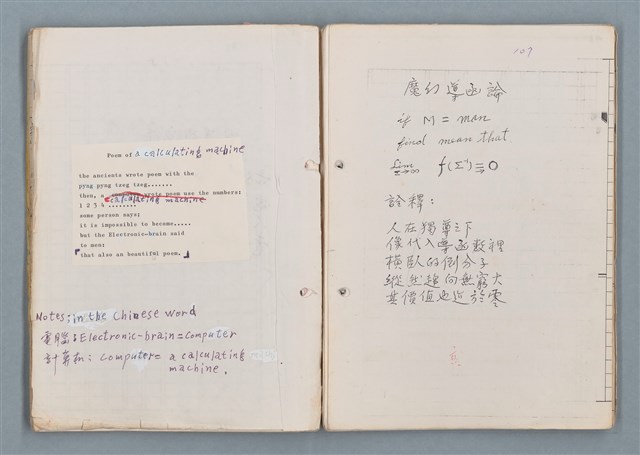 Poem of a calculating machine
the ancients wrote poem with the
pyng pyng tzag tzag.......
then, a calculating machine wrote poem use the numbers:
1 2 3 4 ........
some person says:
it is impossible to become.....
but the Electronic-brain said
to men:
that also an beautiful poem.
Notes: in the Chinese word
電腦: Electronic-brain=Computer
計算机: Computer= a calculating
machine.
107
魔幻導函論
if M = man
find mean that
lim f(Σ¹) ⇒ 0
詮釋:
人在獨尊之下
像代入導函數裡
橫臥的倒分子
縱然趨向無窮大
其價值也近於零